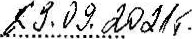 29.09.2021г.